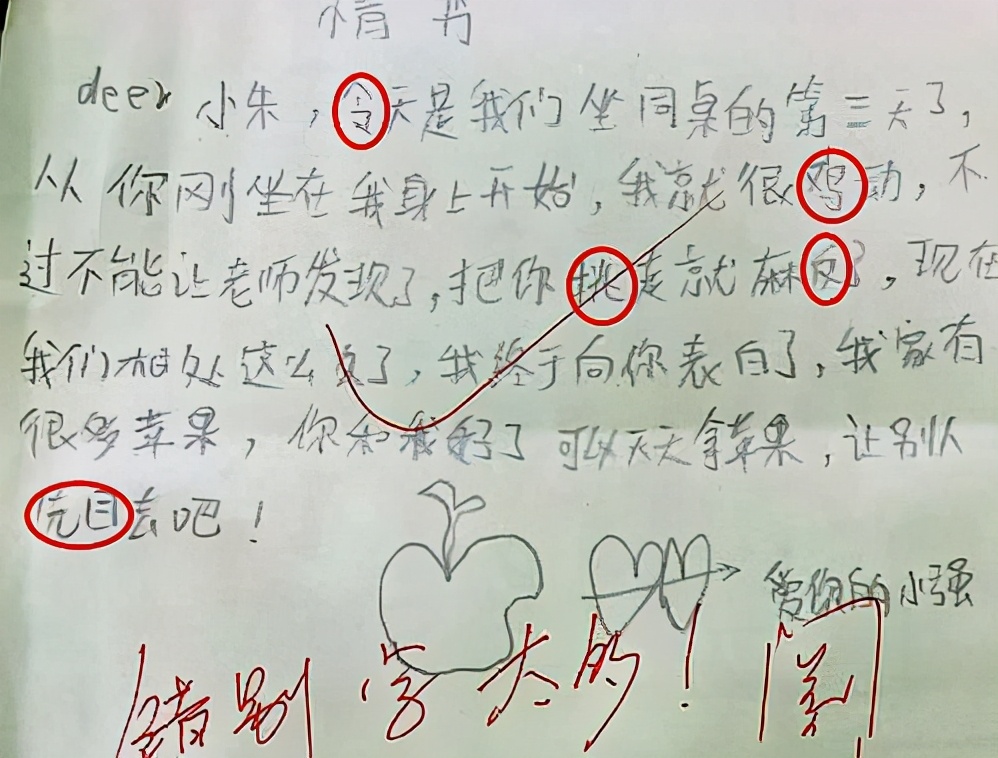 情书
deer 小朱，令天是我们坐同桌的第三天了，
从你刚坐在我身上开始，我就很鸡动，不
过不能让老师发现了，把你挑走就麻反了，现在
我们相处这么
了，我终于向你表白了，我家有
很多苹果，你和我好了可以天天拿苹果，让别人
完目去吧！
爱你的小强
错别字太多！阅